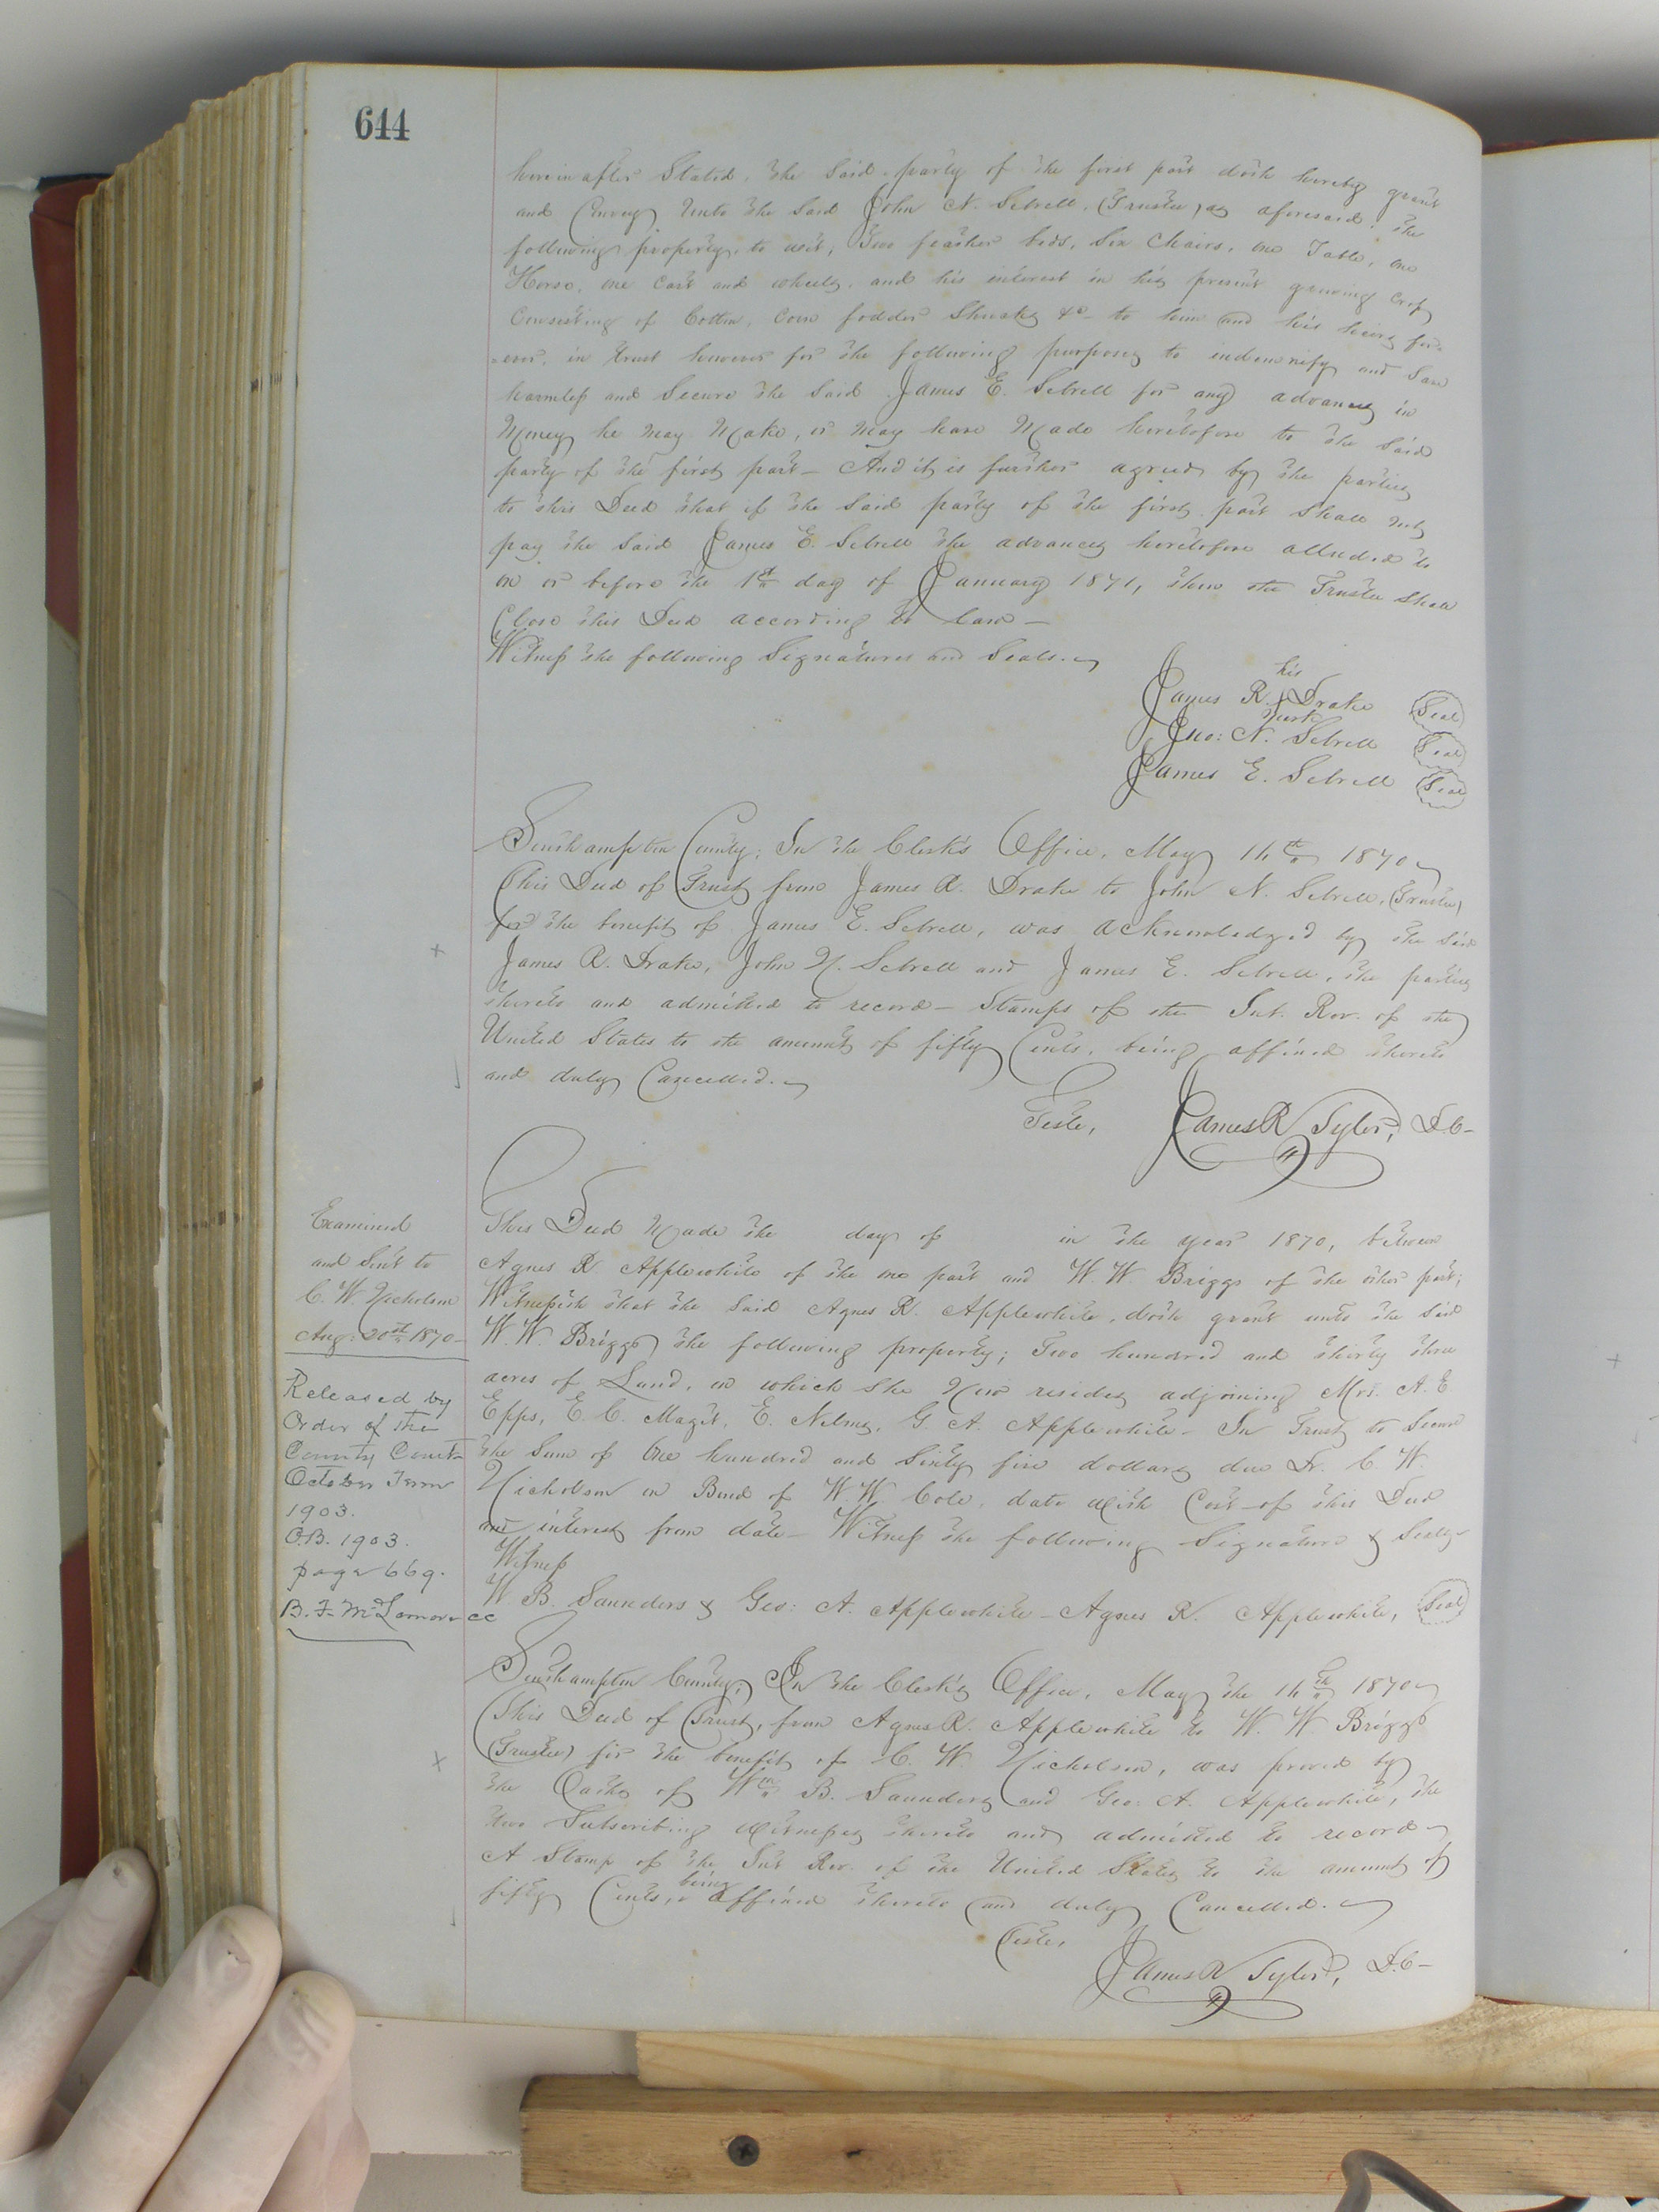 644
hereinafter Stated, the Said party of the first part doth hereby grant
and Convey Unto the Said John N. Sebrell, (Trustee) as aforesaid the
following property, to wit; Two feather beds, Six Chairs, one Table, one
Horse, one Cart and wheels, and his interest in his present growing crop
Consisting of Cotton, Corn fodder Shucks &c - to him and his heirs for-
=ever, in trust however for the following purposes to indemnify and Save
harmless and Secure the Said James E. Sebrell for any advances in
Money he May Make, or may have Made heretofore to the Said
party of the first part - And it is further agreed by the parties
to this Deed that if the Said party of the first part Shall not
pay the Said James E. Sebrell the advances heretofore alluded to
on or before the 1st day of January 1871, then the Trustee Shall
Close this Deed according to law -
Witness the following Signatures and Seals.
his
James R. X Drake Seal
Mark
Jno: N. Sebrell Seal
James E. Sebrell Seal
Southampton County; In the Clerk's Office, May 16th 1870
This Deed of Trust from James R. Drake to John N. Sebrell, (Trustee)
for the benefit of James E. Sebrell, was acknowledged by the Said
James R. Drake, John N. Sebrell and James E. Sebrell, the parties
thereto and admitted to record - Stamps of the Int. Rev. of the
United States to the amount of fifty Cents, being affixed thereto
and duly Cancelled.
Teste, James R Tyler, D.C-
Examined
and Sent to
C. W. Nicholson
Aug: 20th 1870-
Released by
Order of the
County Court
October Term
1903.
O.B. 1903.
page 669.
B. F. McLemore cc
This Deed Made the day of in the year 1870, between
Agnes R Applewhite of the one part and W. W. Briggs of the other part;
Witnesseth that the Said Agnes R. Applewhite, doth grant unto the Said
W. W. Briggs the following property; Two hundred and thirty three
acres of Land, on which She Now resides adjoining Mrs. A. E
Epps, E. C. Magit, E. Nelms, G. A. Applewhite - In Trust to Secure
the Sum of One hundred and Sixty five dollars due Dr. C. W.
Nicholson on Bond of W. W. Cole, date with Cost of this Deed
and interest from date - Witness the following Signature & Seals
Witness
W. B. Saunders & Geo: A. Applewhite - Agnes R. Applewhite, Seal
Southampton County; In the Clerk's Office, May the 16th 1870
This Deed of Trust, from Agnes R. Applewhite to W. W. Briggs
(Trustee) for the benefit of C. W. Nicholson, was proved by
the Oaths of Wm B. Saunders and Geo: A. Applewhite, the
two Subscribing Witnesses thereto and admitted to record
A Stamp of the Int Rev. of the United States to the amount of
being
fifty Cents, affixed thereto and duly Cancelled.
Teste,
James R Tyler, D.C-